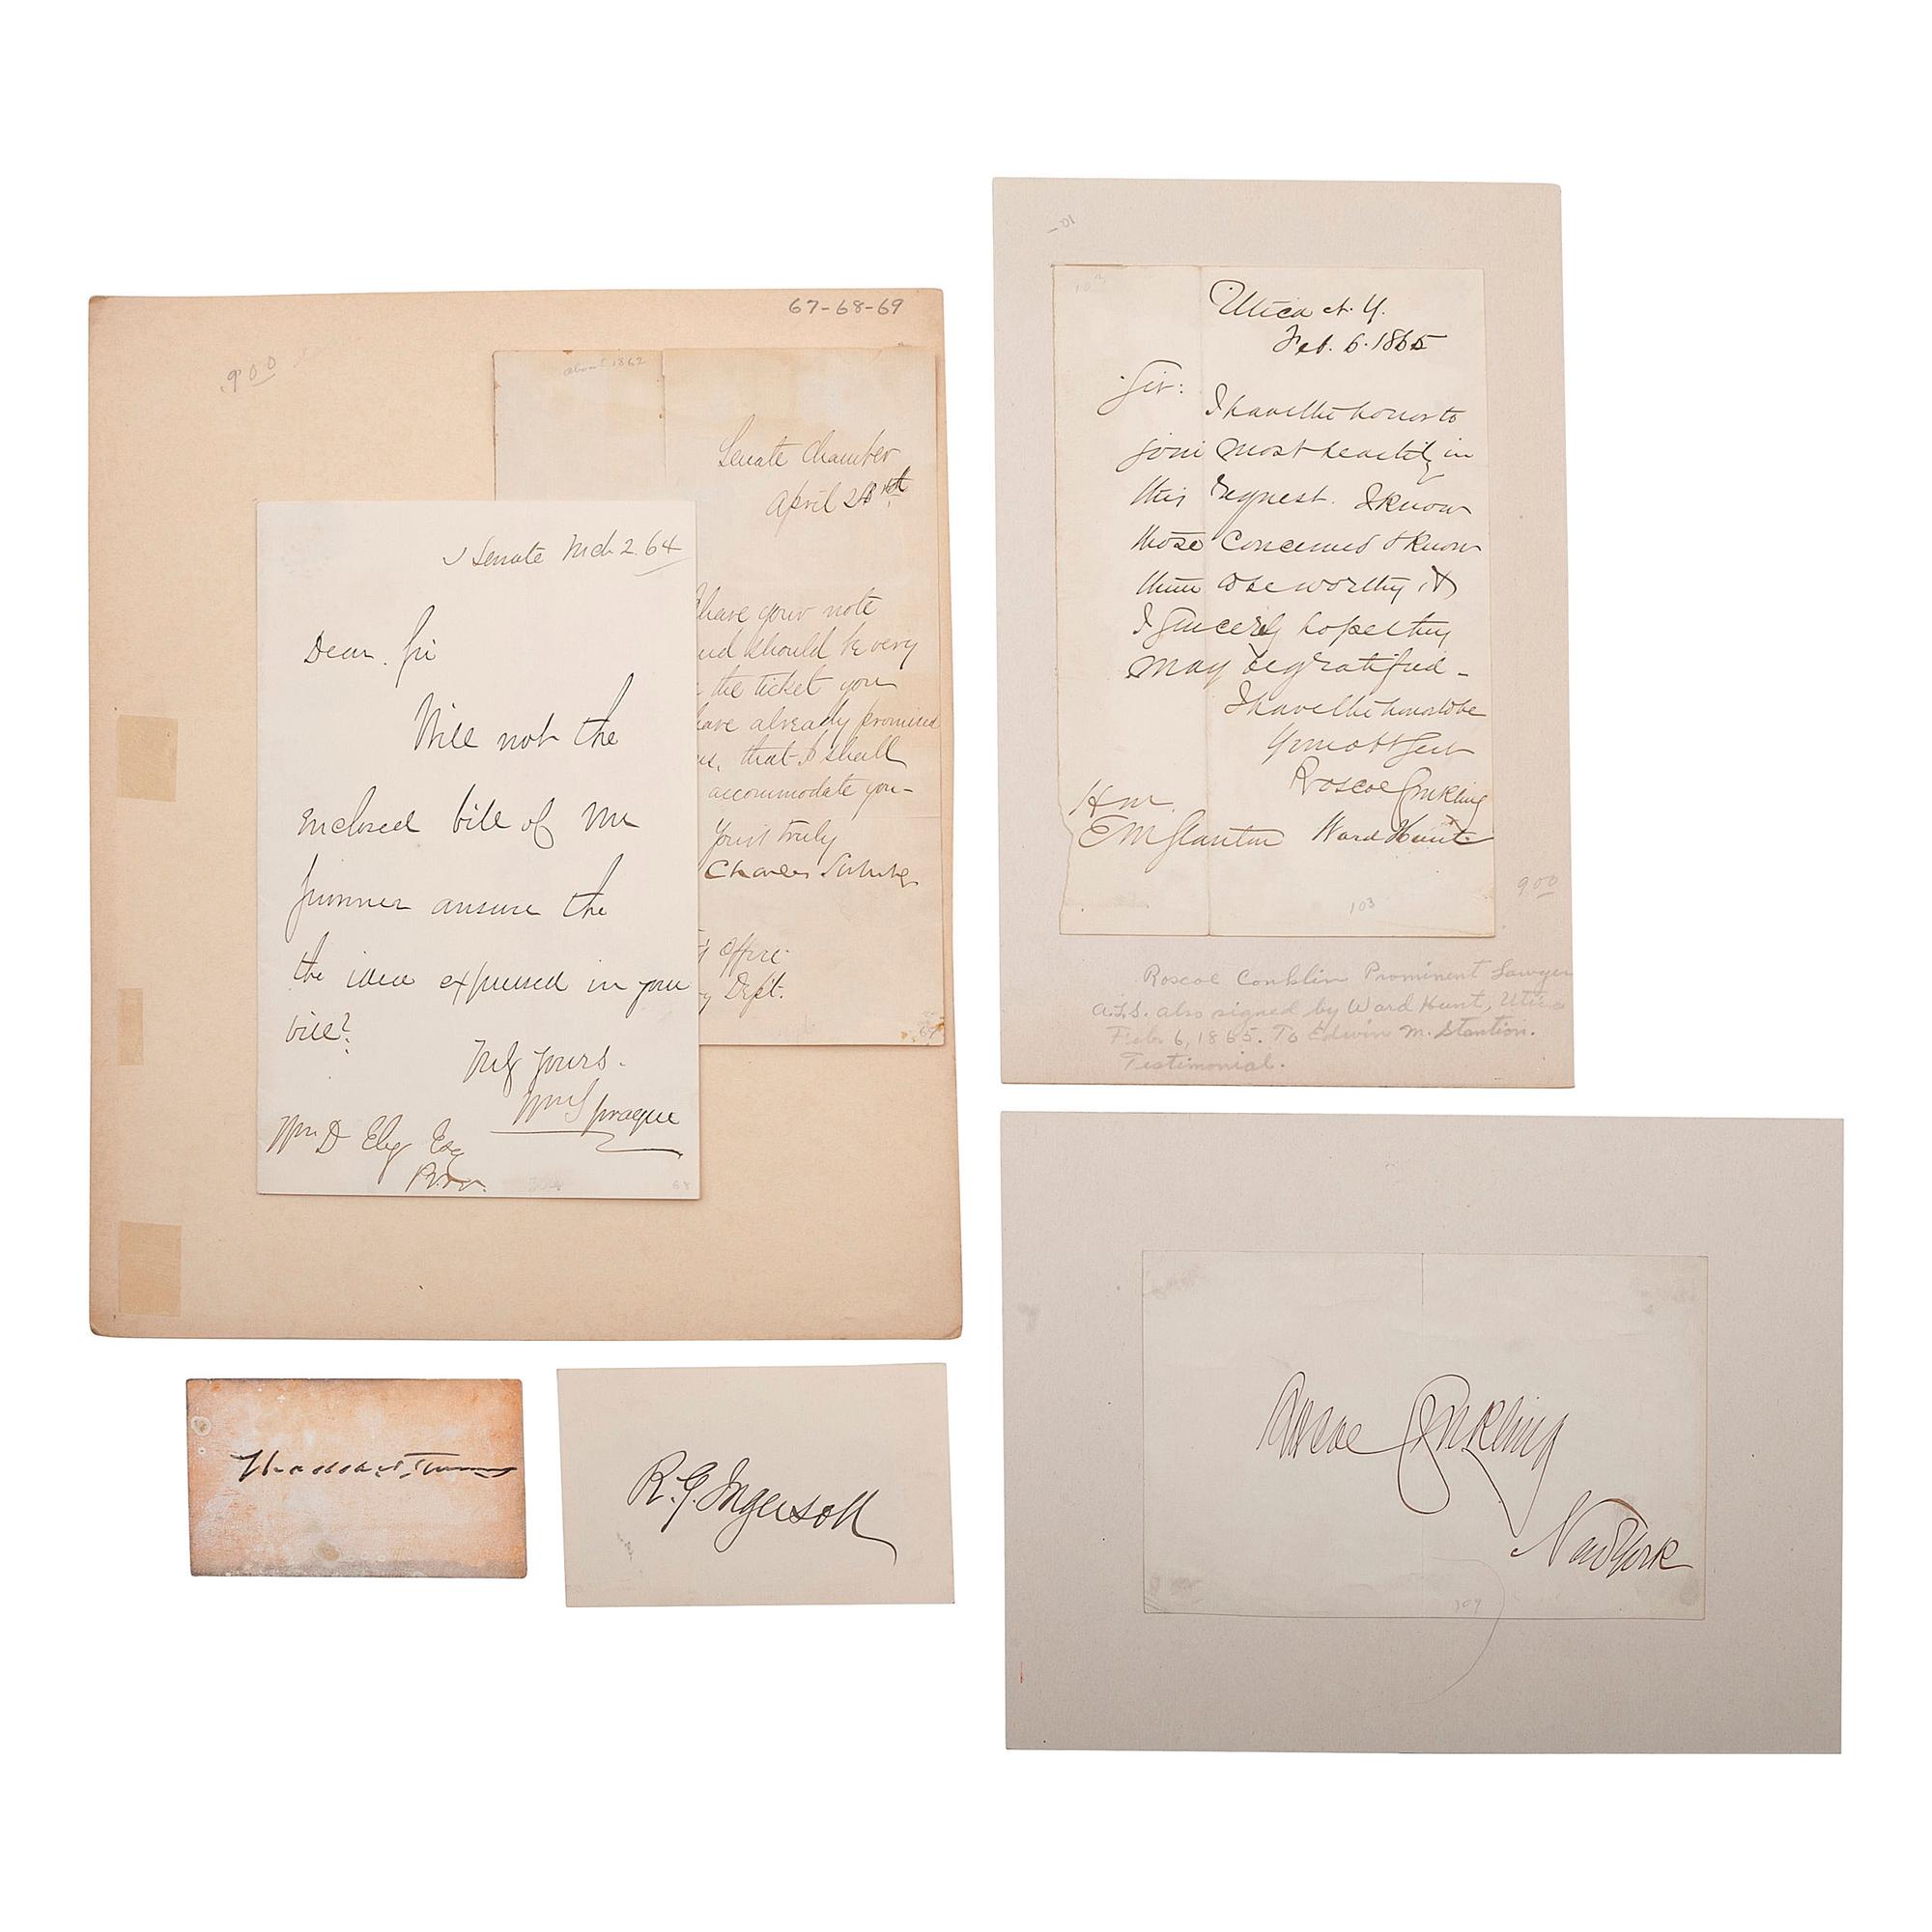 67-68-69
900
about 1862
Senate Chamber
April 28th
have your note
should be very
the ticket you
have already promised
that I shall
accommodate you-
Yours truly
Charles Sumner
Office
Dept.
69
Senate Mch 2. 64
Dear. Sir
Will not the
enclosed bill of
the
the idea expressed in your
bill?
yours.
Wm Sprague
Wm D Ely Esq
Prov.
68
Utica N. Y.
Feb. 6. 1865
Sir:
I have the honor to
join most heartily in
this request. I know
those concerned & know
them to be worthy, &
I sincerely hope they
may be gratified -
I have the honor to be
Your obt Servt
Roscoe Conkling
Hon.
E M Stanton Ward Hunt
103
900
Roscoe Conklin Prominent Lawyer
A.L.S. also signed by Ward Hunt, Utica
Feb 6, 1865. To Edwin M. Stantion.
Testimonial.
Thaddeus Stevens
R. G. Ingersoll
Roscoe Conkling
New York
109